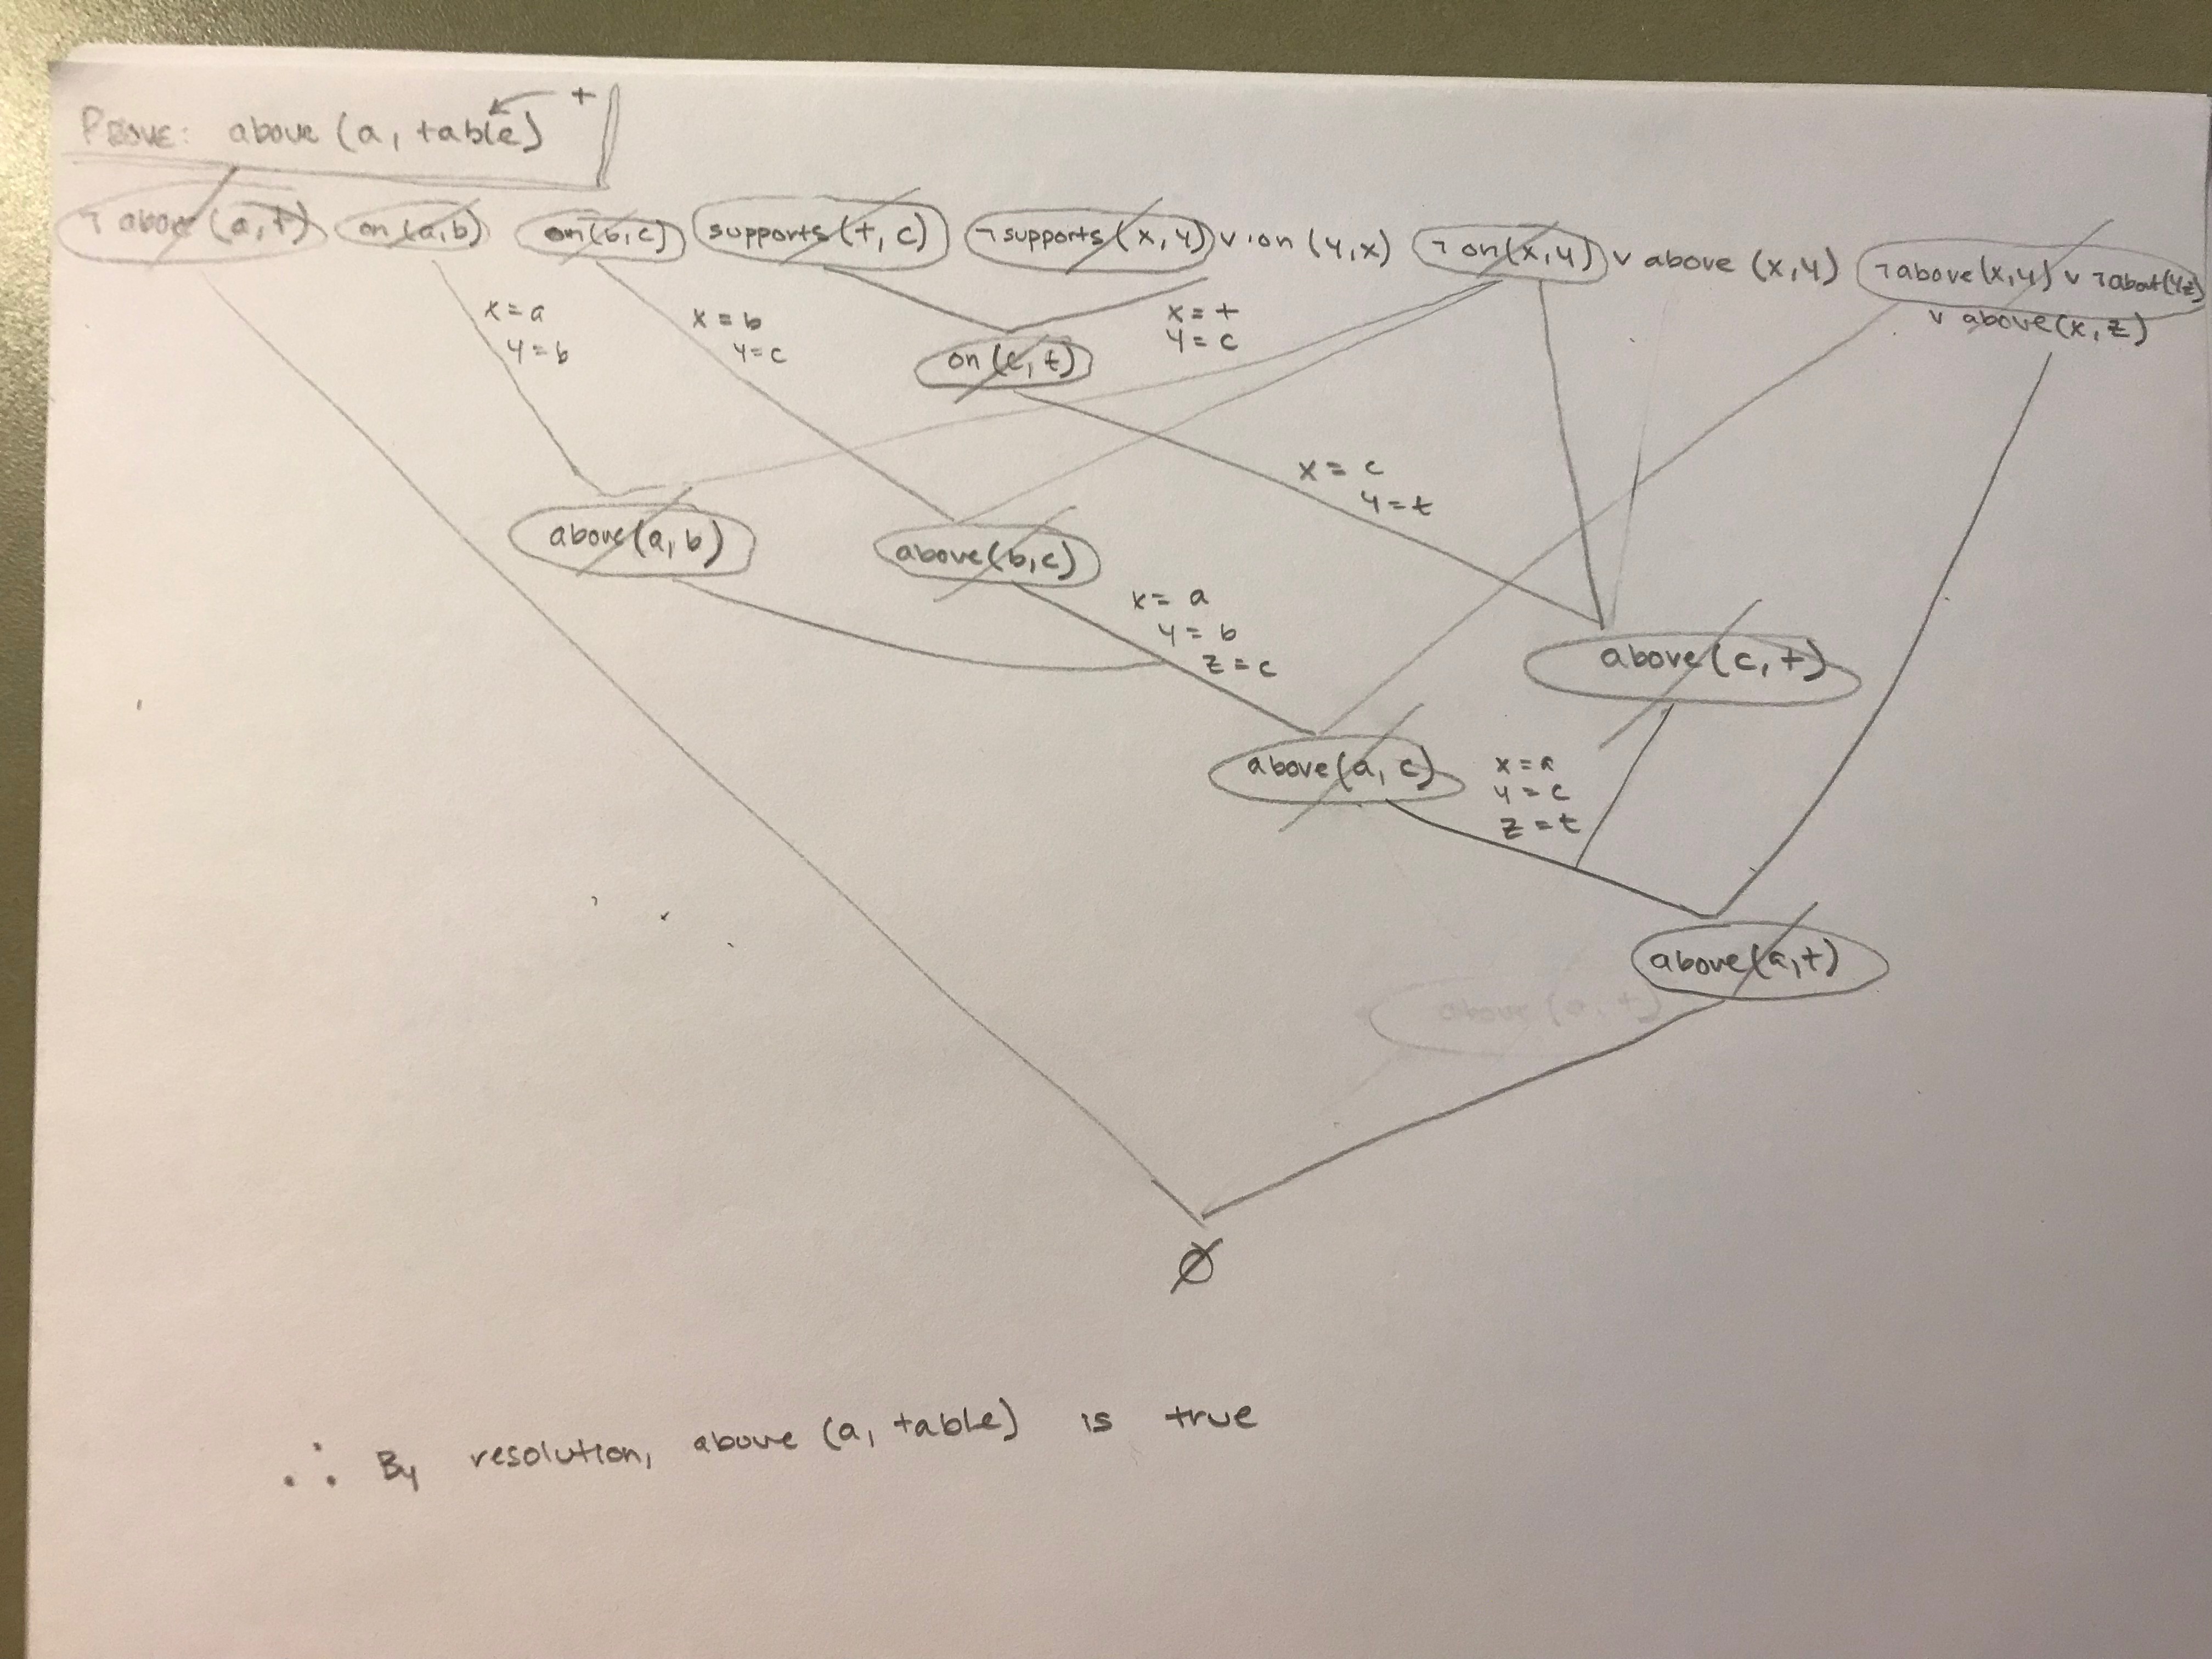 t
PROVE: above (a, table)
¬ above (a, t) on (a, b) on (b, c) supports (t, c) ¬ supports (x, y) v on (y, x) ¬ on (x, y) v above (x, y) ¬ above (x, y) v ¬ abov (y, z)
v above (x, z)
x = a
y = b
x = b
y = c
x = t
y = c
on (c, t)
x = c
y = t
above (a, b) above (b, c)
x = a
y = b
z = c
above (c, t)
above (a, c)
x = a
y = c
z = t
above (a, t)
above (a, t)
∅
∴ By resolution, above (a, table) is true